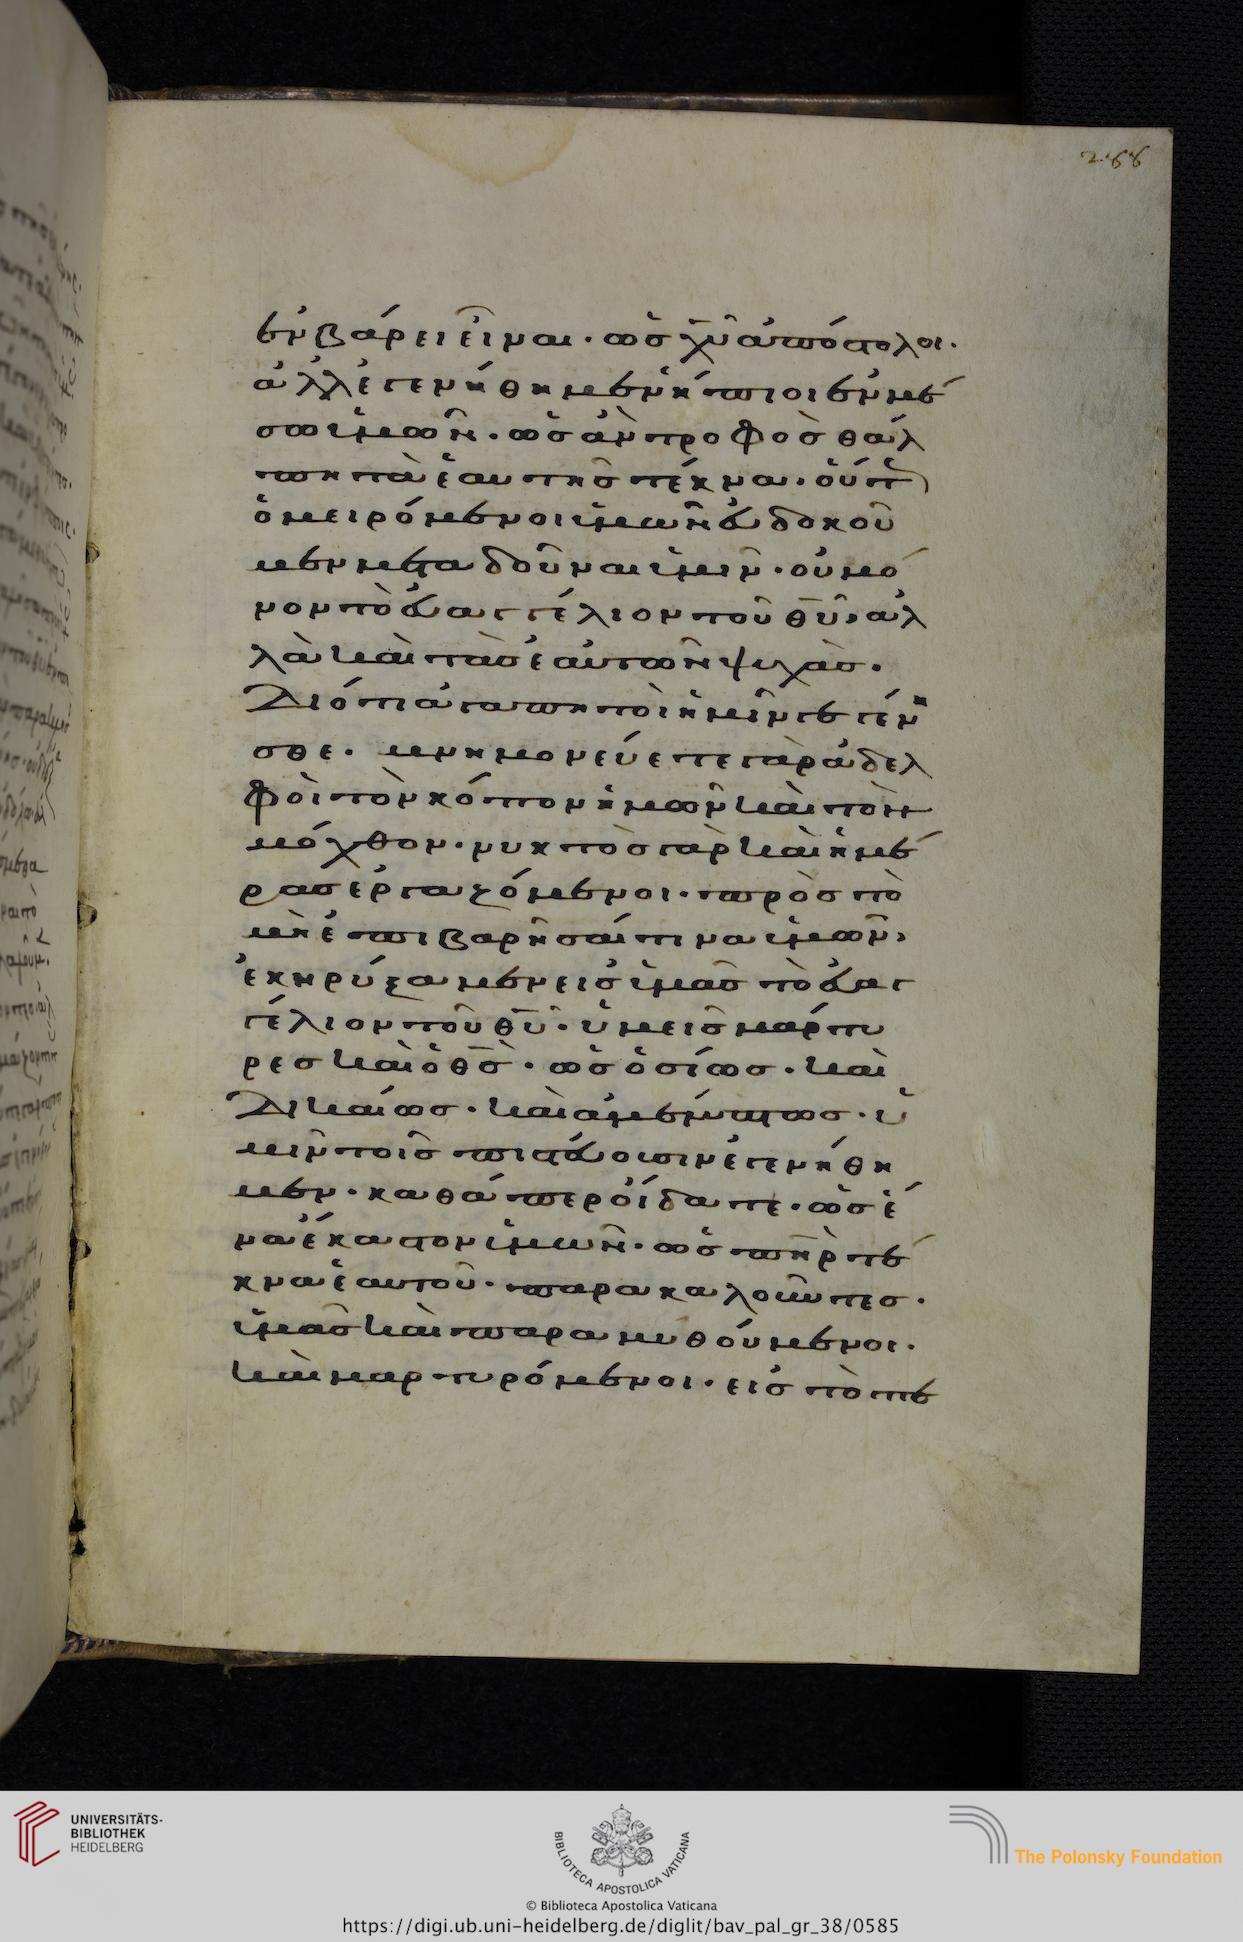 288
ἐν βάρει εἶναι· ὡς χυ ἀπόστολοι·
ἀλλ ἐγενήθημεν ἤπιοι ἐν μέ
σω ὑμῶν· ὡς ἂν τροφὸς θάλ
πη τὰ ἑαυτῆς τέκνα· οὕτω
ὁμειρόμενοι ὑμῶν εὐδοκοῦ
μεν μεταδοῦναι ὑμῖν· οὐ μό
νον τὸ εὐαγγέλιον τοῦ θυ, ἀλ
λὰ καὶ τὰς ἑαυτῶν ψυχὰς·
Διότι ἀγαπητοὶ ἡμῖν γεγένη
σθε· μνημονεύετε γὰρ ἀδελ
φοὶ τὸν κόπον ἡμῶν καὶ τὸν
μόχθον· νυκτὸς γὰρ καὶ ἡμέ
ρας ἐργαζόμενοι· πρὸς τὸ
μὴ ἐπιβαρῆσαί τινα ὑμῶν,
ἐκηρύξαμεν εἰς ὑμᾶς τὸ εὐαγ
γέλιον τοῦ θυ· ὑμεῖς μάρτυ
ρες καὶ ὁ θς· ὡς ὁσίως· καὶ
Δικαίως· καὶ ἀμέμπτως· ὑ
μῖν τοῖς πιστεύουσιν ἐγενήθη
μεν· καθάπερ οἴδατε· ὡς ἕ
να ἕκαστον ὑμῶν· ὡς πηρ τέ
κνα ἑαυτοῦ· παρακαλοῦντες·
ὑμᾶς καὶ παραμυθούμενοι·
καὶ μαρτυρόμενοι· εἰς τὸ πε
UNIVERSITÄTS-
BIBLIOTHEK
HEIDELBERG
BIBLIOTECA APOSTOLICA VATICANA
The Polonsky Foundation
© Biblioteca Apostolica Vaticana
https://digi.ub.uni-heidelberg.de/diglit/bav_pal_gr_38/0585